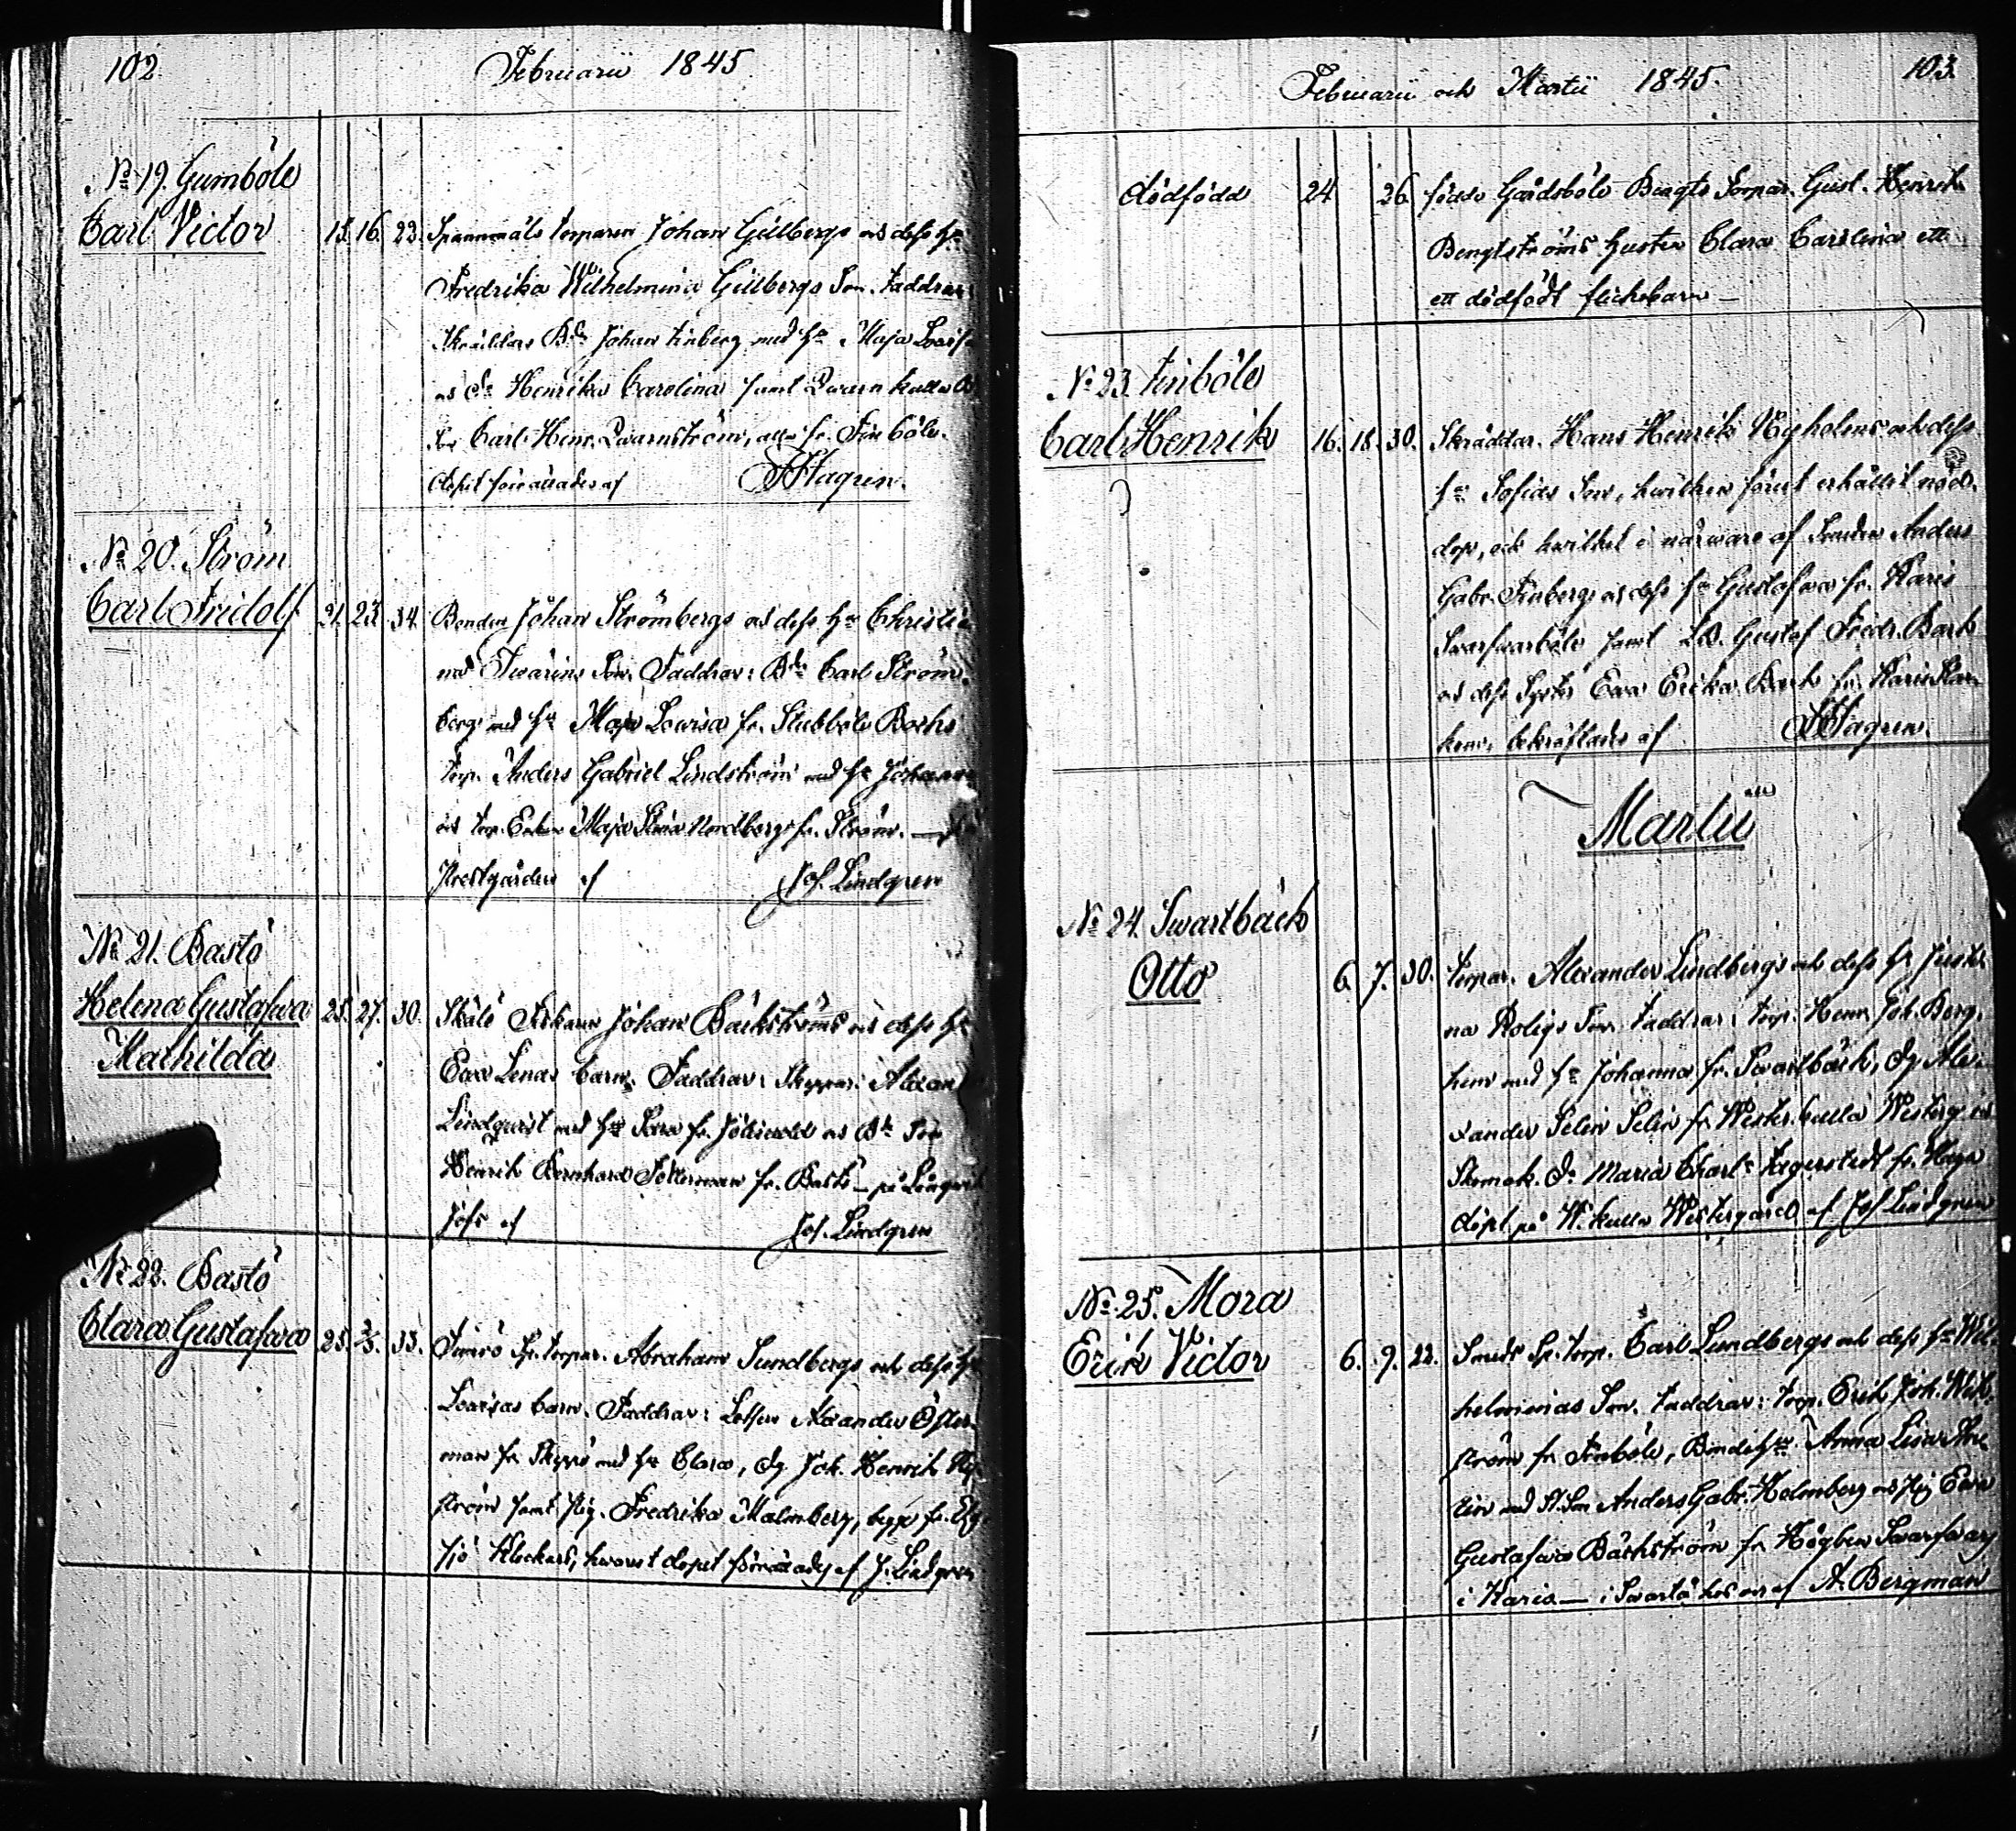 102.
Februarii 1845
No 19. Gumböle
Carl Victor 15. 16. 23. Spanmåls torparen Johan Gillbergs och dess Hu
Fredrika Wilhelmina Gillbergs Son. Faddrar:
Bde Johan Finberg med Hu Maja Lovisa
Henrika Carolina samt
Carl Henr. Qvarnström, alla fr. Finböle.
dopet förrättades af Hagren.
No 20. Ström
Carl Fridolf 21. 23. 34. Bonden Johan Strömbergs och dess Hu Christi
nas Son. Faddrar: Bde Carl Ström-
berg med Hu Maja Lovisa fr. Stubböle
torp. Anders Gabriel Lindström med Hu Johanna
och torp. Enkan Maja Stina Nordberg fr. Ström. —
Prestgården af Jos. Lindgren
No 21. Bastö
Helena Gustafva 25. 27. 30. Skälö Fiskaren Johan Bäckströms och dess Hu
Mathilda
Eva Lenas barn. Faddrar: Skeppar: Alexan
Lindquist med Hu fr. och Bde Son
Henrik Bernhard Söderman fr. Bastö — på
af Jos. Lindgren
No 22. Bastö
Clara Gustafva 25. 2/3. 33. Sp. torpar. Abraham Sundbergs och dess Hu
Lovisas barn. Faddrar: Lotsen Alexander Öster-
man fr. Skeppö med Hu Clara, Dg. Joh. Henrik
ström samt Pig. Fredrika Malmberg, begge fr. Elg-
sjö Klockars, hvarest dopet förrättades af J. Lindgren
103.
Februarii och Martii 1845.
dödfödd 24 26. födde Gårdsböle Bengts Torpar. Gust. Henrik
Bengtströms hustru Clara Carolina ett
ett dödfödt flickebarn —
No 23. Finböle
Carl Henrik 16. 18. 30. Skräddar. Hans Henrik Nyholms och dess
Hu Sofias Son, hvilken förut erhållit nöd-
dop, och hvilket i närvaro af Smeden Anders
Gabr. Finberg och dess Hu Gustafva fr. Karis
Svarfvarböle samt Gustaf Fredr. Back
och dess Syster Eva Erika Back fr. Karis
bekräftades af Hagren.
Martii
No 24. Swartbäck
Otto 6. 7. 30. torpar. Alexander Lindbergs och dess Hu Justi-
na Roligs Son. Faddrar: torp. Henr. Joh. Berg-
hem med Hu Johanna fr. Swartbäck, Dg Ale-
xander Selin Selin fr. Wester kulla Westerg. och
Skomak. Maria Charl. Fagerstedt fr. Haga
döpt på W.kulla Westergård af Jos. Lindgren
No 25. Mora
Erik Victor 6. 9. 22. Smeds Sp. torp. Carl Lundbergs och dess Hu Wil-
helminas Son. Faddrar: torp. Erik Joh. Wik-
ström fr. Finböle, Bonde Hu Anna Lisa
lin med St. Son Anders Gabr. Holmberg och Pig Eva
Gustafva Bäckström fr. Högben Svarfvars
i Karis — i Svartå af A. Bergman